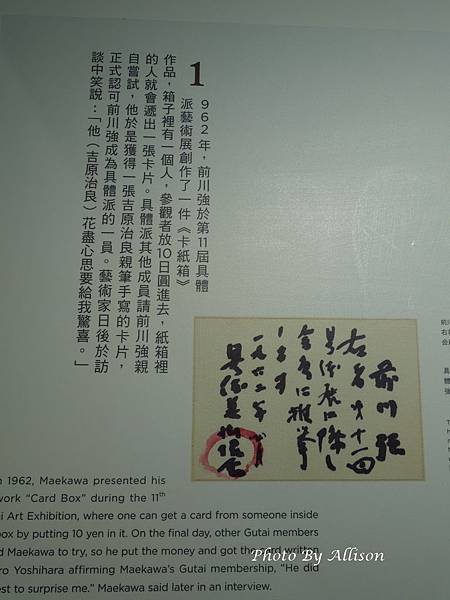 1962年，前川強於第11屆具體
派藝術展創作了一件《卡紙箱》
作品，箱子裡有一個人，參觀者放10日圓進去，紙箱裡
的人就會遞出一張卡片。具體派其他成員請前川強親
自嘗試，他於是獲得一張吉原治良親筆手寫的卡片，
正式認可前川強成為具體派的一員。藝術家日後於訪
談中笑說：「他（吉原治良）花盡心思要給我驚喜。」
前川強
右者第十一回
具体展に際し
会員に推挙
一九六二年
具体美術
n 1962, Maekawa presented his
work “Card Box” during the 11th
i Art Exhibition, where one can get a card from someone inside
box by putting 10 yen in it. On the final day, other Gutai members
d Maekawa to try, so he put the money and got the card written
ro Yoshihara affirming Maekawa’s Gutai membership, “He did
est to surprise me.” Maekawa said later in an interview.
Photo By Allison